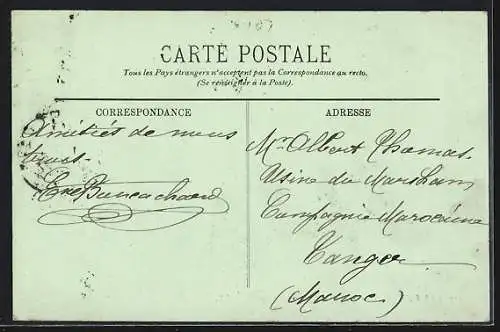 CARTE POSTALE
Tous les Pays étrangers n'acceptent pas la Correspondance au recto.
(Se renseigner à la Poste).
CORRESPONDANCE
Amitiés de nous
trois.
ADRESSE
Mr Albert Thomas
Usine du Marshan
Compagnie Marocaine
Tanger
(Maroc)